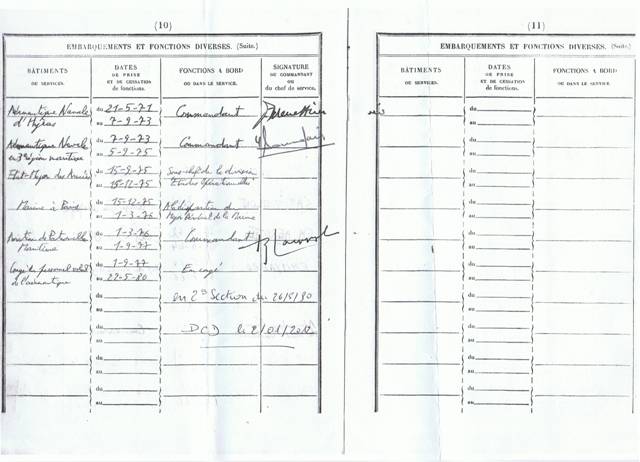 (10)
EMBARQUEMENTS ET FONCTIONS DIVERSES. (Suite.)
BÂTIMENTS
OU SERVICES.
DATES
DE PRISE
ET DE CESSATION
de fonctions.
FONCTIONS A BORD
OU DANS LE SERVICE.
SIGNATURE
DU COMMANDANT
OU
du chef de service.
Aéronautique Navale
d'Hyères
du 21-5-71
au 7-9-73
Commandant
Aéronautique Navale
en 3e région maritime
du 7-9-73
au 5-9-75
Commandant
Etat-Major des Armées
du 15-9-75
au 15-12-75
Sous-chef de la division
Etudes opérationnelles
Marine à Paris
du 15-12-75
au 1-3-76
A la disposition du
Major Général de la Marine
Patrouille
Maritime
du 1-3-76
au 1-9-77
Commandant
Congé du personnel
de l'aéronautique
du 1-9-77
au 22-5-80
En congé
du
au
en 2e Section du 26/5/80
du
au
DCD le 2/01/2012
du
au
du
au
du
au
(11)
EMBARQUEMENTS ET FONCTIONS DIVERSES. (Suite.)
BÂTIMENTS
OU SERVICES.
DATES
DE PRISE
ET DE CESSATION
de fonctions.
FONCTIONS A BORD
OU DANS LE SERVICE.
du
au
du
au
du
au
du
au
du
au
du
au
du
au
du
au
du
au
du
au
du
au